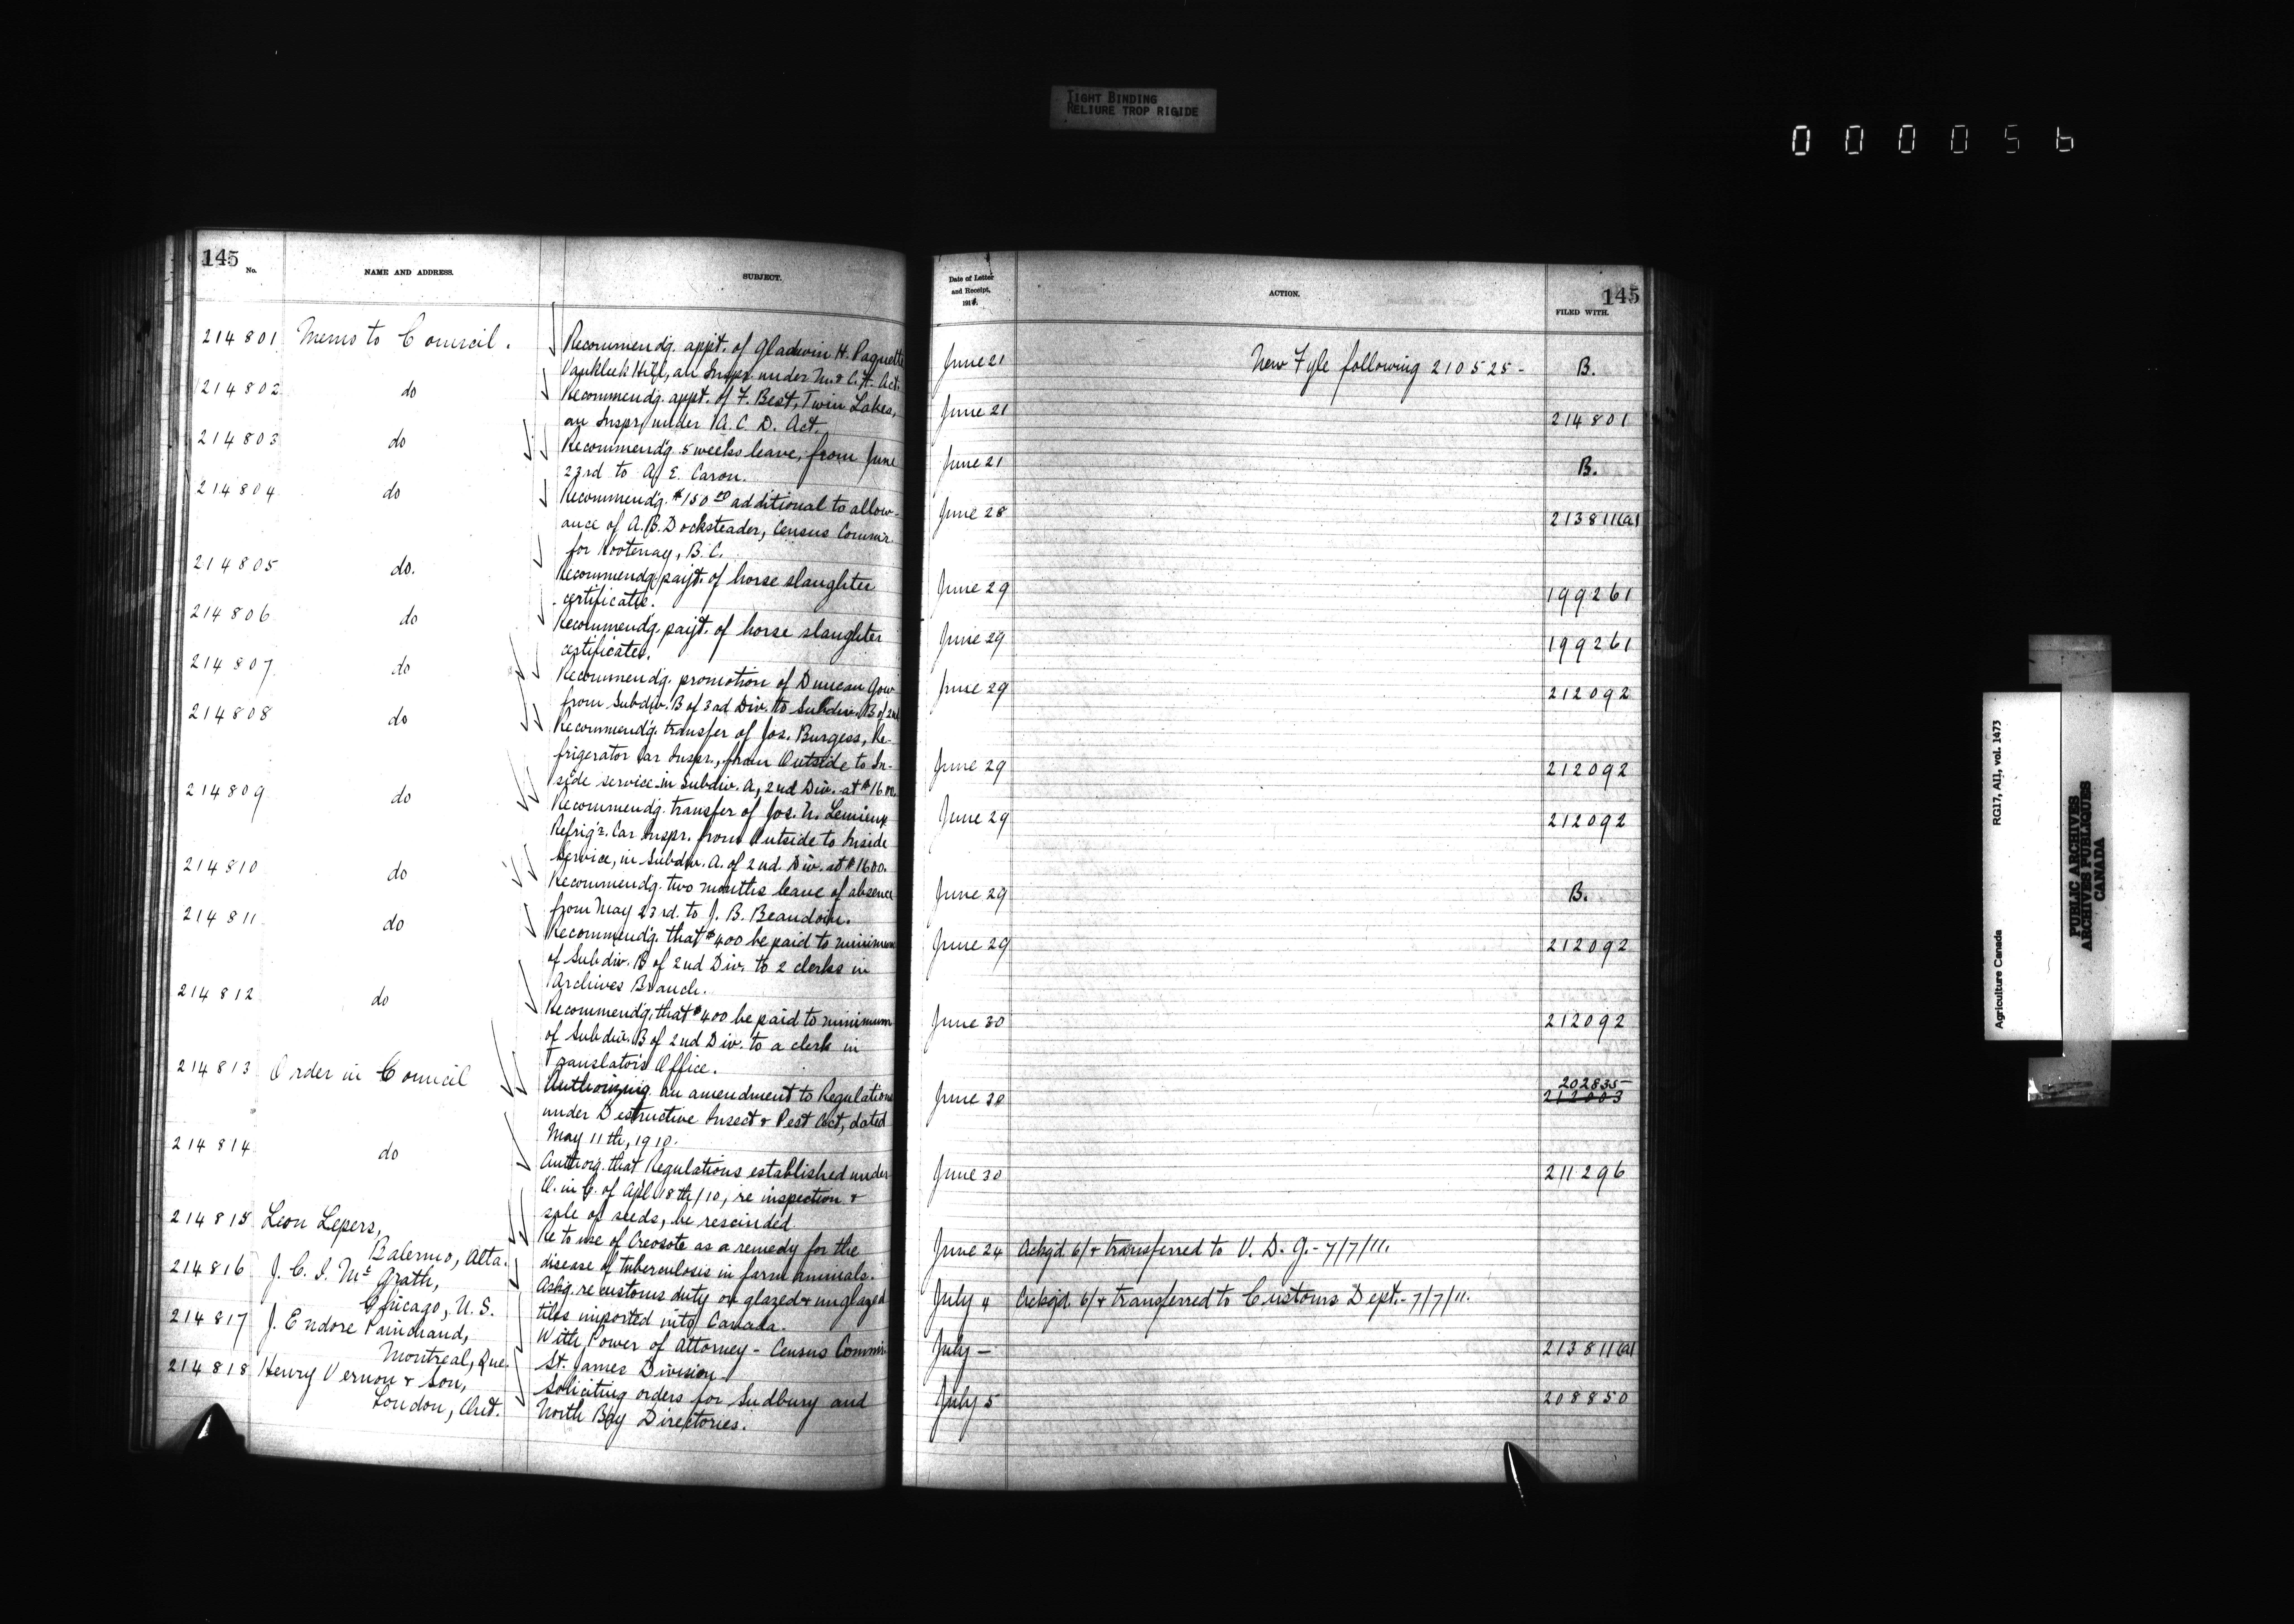 TIGHT BINDING
RELIURE TROP RIGIDE
000056
145
No.
NAME AND ADDRESS.
SUBJECT.
214801 Memo to Council.
Recommendg. appt. of Gladwin H. Paquette
Vankleek Hill, an Inspr. under M. & C. F. Act.
214802 do
Recommendg. appt. of F. Best, Twin Lakes,
an Inspr. under A. C. D. Act.
214803 do
Recommendg. 5 weeks leave, from June
23rd to A. E. Caron.
214804 do
Recommendg. $150.00 additional to allow-
ance of A. B. Docksteader, Census Commr.
for Kootenay, B. C.
214805 do.
Recommendg. payt. of horse slaughter
certificate.
214806 do
Recommendg. payt. of horse slaughter
certificates.
214807 do
Recommendg. promotion of Duncan Gow
from Subdiv. B of 3rd Div. to Subdiv. B of 2nd
214808 do
Recommendg. transfer of Jos. Burgess, Re-
frigerator Car Inspr., from Outside to In-
side service in Subdiv. A, 2nd Div. at $1600.
214809 do
Recommendg. transfer of Jos. N. Lemieux
Refrig'r. Car Inspr. from Outside to Inside
Service, in Subdiv. A. of 2nd. Div. at $1600.
214810 do
Recommendg. two months leave of absence
from May 23rd. to J. B. Beaudoin.
214811 do
Recommendg. that $400 be paid to minimum
of Subdiv. B of 2nd Div. to 2 clerks in
Archives Branch.
214812 do
Recommendg. that $400 be paid to minimum
of Subdiv. B of 2nd Div. to a clerk in
Translator's Office.
214813 Order in Council
Authorizing an amendment to Regulations
under Destructive Insect & Pest Act, dated
May 11th, 1910.
214814 do
Authorg. that Regulations established under
O. in C. of Apl 18th/10, re inspection &
sale of seeds, be rescinded
214815 Leon Lepers,
Balermo, Alta.
Re to use of Creosote as a remedy for the
disease of tuberculosis in farm animals.
214816 J. C. I. McGrath,
Chicago, U. S.
Askg. re customs duty on glazed & unglazed
tiles imported into Canada.
214817 J. Endore Painchaud,
Montreal, Que.
With Power of Attorney - Census Commr.
St. James Division
214818 Henry Vernon & Son,
London, Ont.
Soliciting orders for Sudbury and
North Bay Directories.
Date of Letter
and Receipt,
191
ACTION.
145
FILED WITH.
June 21 New Fyle following 210525- B.
June 21 214801
June 21 B.
June 28 213811(a)
June 29 199261
June 29 199261
June 29 212092
June 29 212092
June 29 212092
June 29 B.
June 29 212092
June 30 212092
202835
June 30 212003
June 30 211296
June 24 Ackgd. 6/ & transferred to V. D. G. - 7/7/11.
July 4 Ackgd. 6/ & transferred to Customs Dept. - 7/7/11.
July - 213811(a)
July 5 208850
Agriculture Canada
RG17, AII, vol. 1473
PUBLIC ARCHIVES
ARCHIVES PUBLIQUES
CANADA